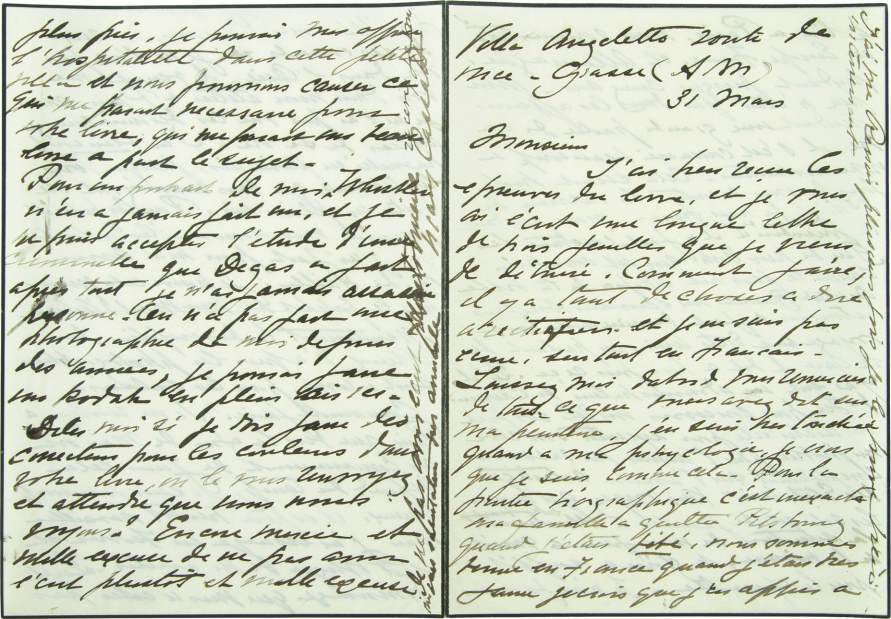 Villa Angeletto route de
nice - Grasse (A M)
31 Mars
Monsieur
J'ai bien recue les
epreuves du livre, et je vous
ai écrit une longue lettre
de trois feuilles que je viens
de détruire. Comment faire,
il y a tant de choses a dire
a rectifier et je ne suis pas
surtout en Francais -
Laissez moi d'abord vous remercier
de tout ce que vous avez dit sur
ma peinture, j'en suis tres touchée
quand a ma psycologie, je crois
que je suis comme cela. Pour la
partie biographique c'est inexacte
ma famille a quittée Pittsburg
quand j'étais bébé, nous sommes
venue en France quand j'étais très
jeune je crois que j'ai appris a
plus près, je pourrai vous offrir
l'hospitalité dans cette petite
villa et nous pourrions causer ce
qui me parait necessaire pour
votre livre, qui me parait un beau
livre a part le sujet -
Pour un portrait de moi, Whistler
n'en a jamais fait un, et je
ne puis accepter l'étude d'une
criminelle que Degas a fait
apres tout je n'ai jamais assassiné
personne. On n'a pas fait une
photographie de moi depuis
des années, je pourrais faire
un kodak en plein air ici -
Dites moi si je dois faire des
corrections pour les couleurs dans
votre livre, ou le vous renvoyez
et attendre que nous nous
voyons? Encore merci et
mille excuse de ne pas avoir
écrit plustôt et mille excuse